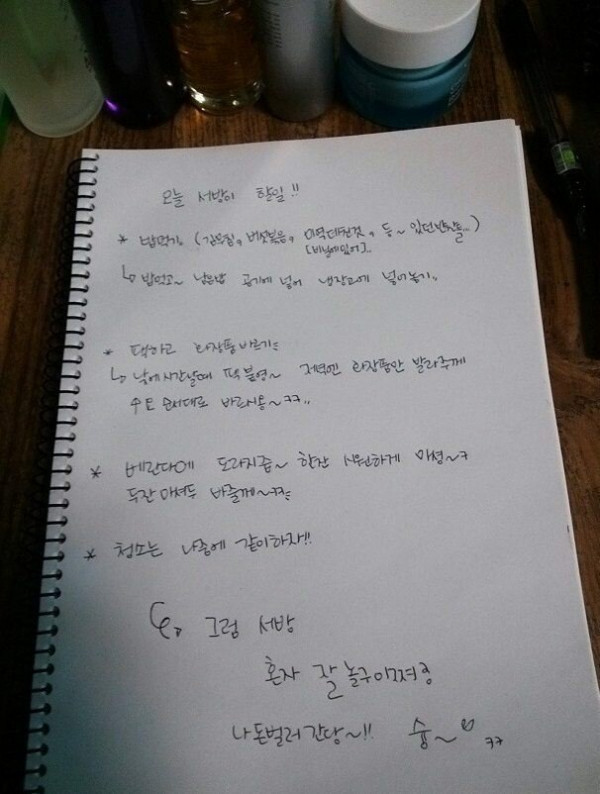 오늘 서방이 할일!!
* 밥먹기. (김무침, 버섯볶음, 미역데친것, 등~ 있던반찬들..)
[비닐에있어]..
↳ 밥먹고~ 남은밥 공기에 넣어 냉장고에 넣어놓기..
* 팩하고 화장품바르기
↳ 낮에시간날때 팩 붙영~ 저녁엔 화장품만 발라주께
순서대로 바르시용~ㅋㅋ..
* 베란다에 도라지즙~ 한잔 시원하게 마셩~ㅋ
두잔 마셔두 바줄께~ㅋㅋ
* 청소는 나중에 같이하자!!
그럼 서방
혼자 잘 놀구이쪄용
나돈벌러 간당~!! 슝~ ㅋㅋ